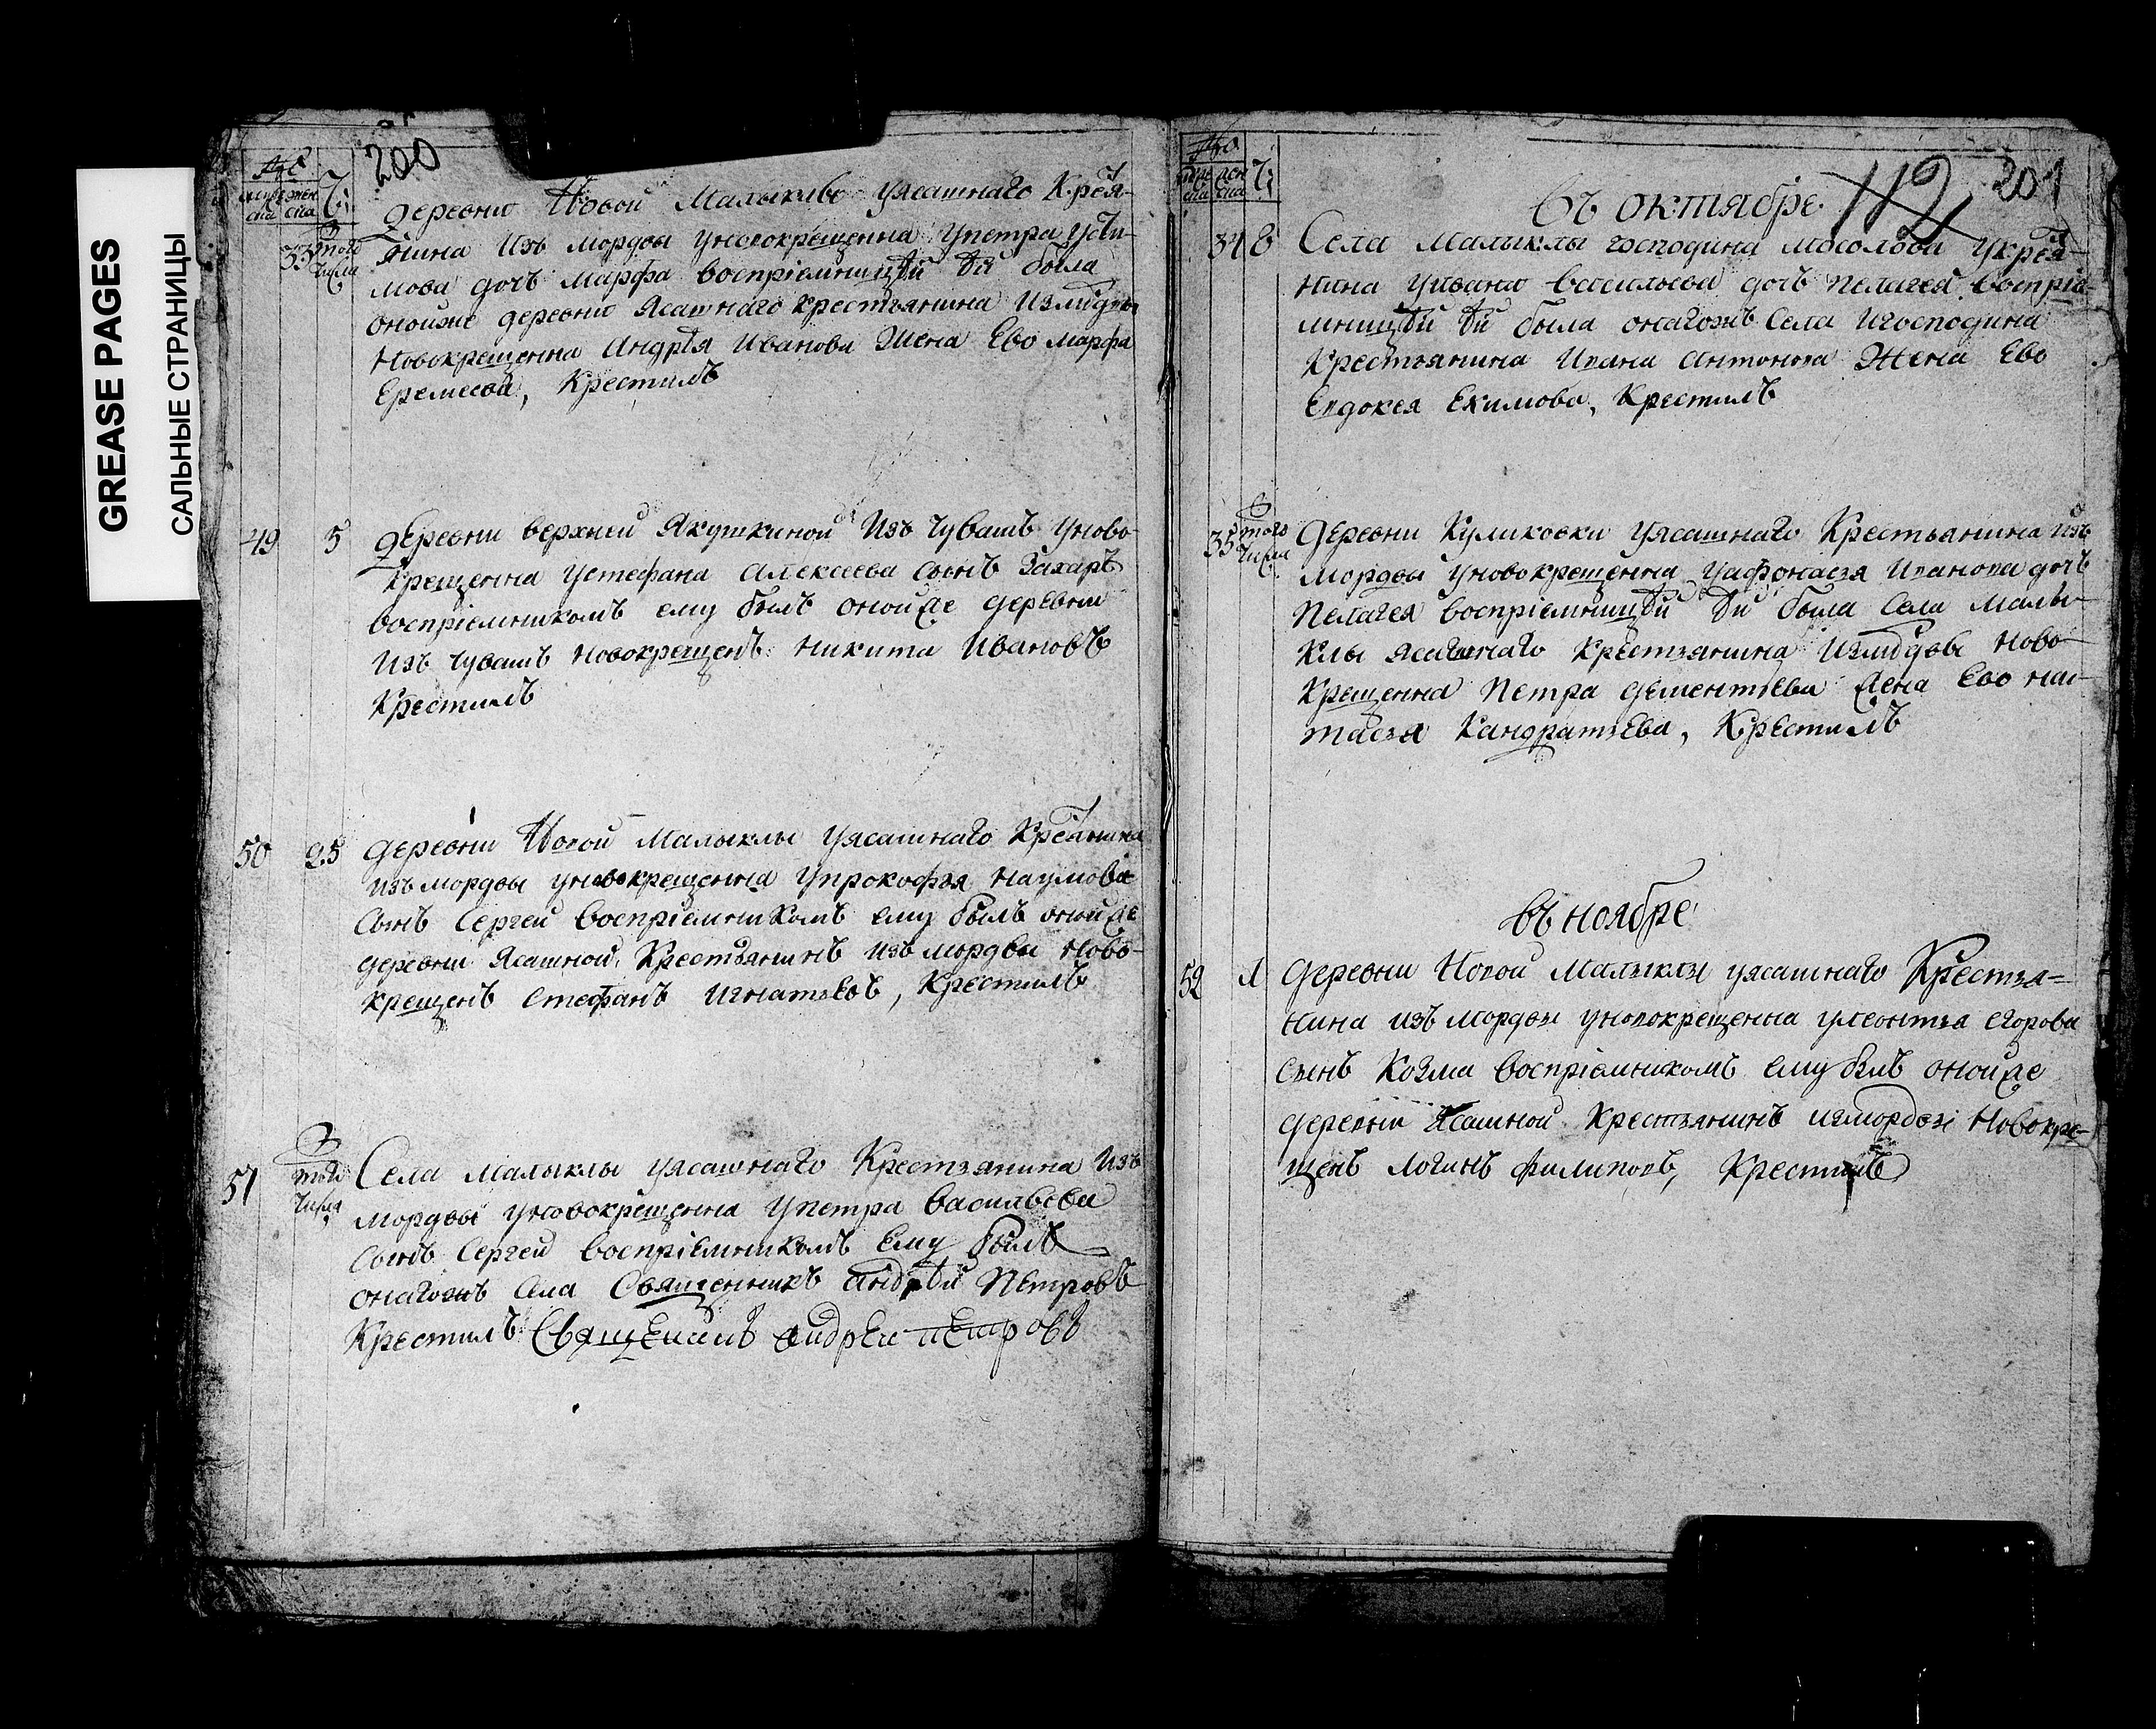 GREASE PAGES
САЛЬНЫЕ СТРАНИЦЫ
200
мужеск женс
Ч:
Деревни Новой Малыклы уясашнаго Крестья-
33 того числа
нина изъ мордвы уновокрещенна упетра усти-
мова дочь марфа воспріемницѣй ѣй была
оноиже деревни Ясашнаго крестьянина измордвы
Новокрещенна Андрѣя Иванова Жена Ево марфа
Еремеева, Крестилъ
49 5 деревни верхней Якушкиной изъ чувашъ уново-
крещенна устефана алексеева сынъ Захаръ
воспріемникомъ ему былъ оноиже деревни
изъ чувашъ новокрещенъ никита ивановъ
Крестилъ
50 25 деревни Новой малыклы уясашнаго Крестьянина
изъ мордвы уновокрещенна упрокофья наумова
сынъ Сергей воспріемникомъ ему былъ оноиже
деревни Ясашной Крестьянинъ изъ мордвы ново-
крещенъ стефанъ игнатьевъ, Крестилъ
51 того числа Села малыклы уясашнаго Крестьянина изъ
мордвы уновокрещенна упетра васильева
сынъ Сергей воспріемникомъ Ему былъ
онагожъ села Священникъ андрѣй Петровъ
Крестилъ Священникъ андреи петровъ
Ч:
112 201
въ октябре
34 8 Села малыклы господина мосолова укрестья-
нина уивана васильева дочь пелагея воспріе-
мницѣй ѣй была онагожъ села игосподина
крестьянина ивана антонова Жена Ево
Евдокея Екимова, Крестилъ
35 того числа деревни Куликовки уясашнаго Крестьянина изъ
мордвы уновокрещенна уафонасья иванова дочь
пелагея воспріемницѣй ѣй была села малы-
клы ясашнаго крестьянина измордвы ново-
крещенна петра дементьева жена Ево нас-
тасья Кандратьева, Крестилъ
въ ноябре
52 1 деревни Новой малыклы уясашнаго Крестья=
нина изъ мордвы уновокрещенна улеонтья егорова
сынъ Козма воспріемникомъ ему былъ оноиже
деревни Ясашной Крестьянинъ измордвы новокре-
щенъ логинъ филиповъ, Крестилъ